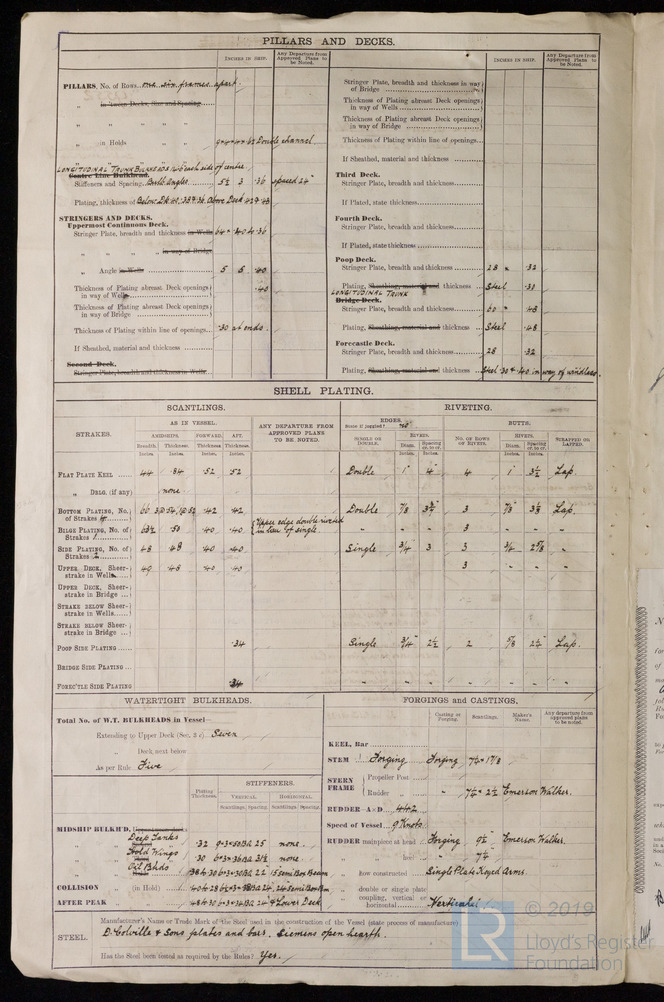 PILLARS AND DECKS.
INCHES IN SHIP.
Any Departure from Approved Plans to be Noted.
PILLARS, No. of Rows one six frames apart.
in Tween Decks, Size and Spacing
" " " "
" in Holds Double channel
LONGITUDINAL TRUNK BULKHEADS each side of centre
Centre Line Bulkhead.
Stiffeners and Spacing Bulb Angles 5½ 3 .36 spaced 24"
Plating, thickness of Below Dk Above Deck
STRINGERS AND DECKS.
Uppermost Continuous Deck.
Stringer Plate, breadth and thickness in Wells 64
" " " " in way of Bridge
" Angle in Wells 5 5 .40
Thickness of Plating abreast Deck openings in way of Wells .40
Thickness of Plating abreast Deck openings in way of Bridge
Thickness of Plating within line of openings .30 at ends.
If Sheathed, material and thickness
Second Deck.
Stringer Plate, breadth and thickness in Wells
INCHES IN SHIP.
Any Departure from Approved Plans to be Noted.
Stringer Plate, breadth and thickness in way of Bridge
Thickness of Plating abreast Deck openings in way of Wells
Thickness of Plating abreast Deck openings in way of Bridge
Thickness of Plating within line of openings
If Sheathed, material and thickness
Third Deck.
Stringer Plate, breadth and thickness
If Plated, state thickness
Fourth Deck.
Stringer Plate, breadth and thickness
If Plated, state thickness
Poop Deck.
Stringer Plate, breadth and thickness 28 .32
Plating, Sheathing, material and thickness Steel .30
LONGITUDINAL TRUNK
Bridge Deck.
Stringer Plate, breadth and thickness 60 .48
Plating, Sheathing, material and thickness Steel .48
Forecastle Deck.
Stringer Plate, breadth and thickness 28 .32
Plating, Sheathing, material and thickness Steel .30 & .40 in way of windlass.
SHELL PLATING.
SCANTLINGS.
RIVETING.
STRAKES.
AS IN VESSEL.
AMIDSHIPS. FORWARD. AFT.
Breadth. Thickness. Thickness. Thickness.
Inches. Inches. Inches. Inches.
ANY DEPARTURE FROM APPROVED PLANS TO BE NOTED.
EDGES.
State if joggled? no
SINGLE OR DOUBLE.
RIVETS.
Diam. Spacing cr. to cr.
Inches. Inches.
BUTTS.
NO. OF ROWS OF RIVETS.
RIVETS.
Diam. Spacing cr. to cr.
Inches. Inches.
STRAPPED OR LAPPED.
FLAT PLATE KEEL 44 .84 .52 .52 Double 1" 4" 4 1" 3½ Lap.
" DBLG. (if any) none.
BOTTOM PLATING, No. of Strakes 4 66 .42 .42 Double 7/8 3 7/8 Lap.
BILGE PLATING, No. of Strakes 1 63½ .50 .40 .40 Upper edge double riveted in lieu of single. " " " 3 " " "
SIDE PLATING, No. of Strakes 2 48 .48 .40 .40 Single 3/4 3 3 3/4 2 5/8 "
UPPER DECK, Sheer-strake in Wells 40 .48 .40 .40 3
UPPER DECK, Sheer-strake in Bridge
STRAKE BELOW Sheer-strake in Wells
STRAKE BELOW Sheer-strake in Bridge
POOP SIDE PLATING .34 Single 3/4 2½ 2 5/8 2¼ Lap.
BRIDGE SIDE PLATING
FOREC'TLE SIDE PLATING .34 " " " " " " "
WATERTIGHT BULKHEADS.
Total No. of W.T. BULKHEADS in Vessel—
Extending to Upper Deck (Sec. 2 c) Seven
" Deck next below
As per Rule Five
STIFFENERS.
Plating Thickness. VERTICAL. HORIZONTAL.
Scantlings. Spacing. Scantlings. Spacing.
MIDSHIP BULKH'D,
Deep Tanks .32 25 none.
Hold Wings .30 none.
Oil Blkds
COLLISION " (in Hold)
AFTER PEAK " " Lower Deck
FORGINGS and CASTINGS.
Casting or Forging. Scantlings. Maker's Name. Any departure from approved plans to be noted.
KEEL, Bar
STEM Forging Forging
STERN FRAME Propeller Post
Rudder " " 7½ × 2½ Emerson Walker.
RUDDER—A×D 442
Speed of Vessel 9 Knots
RUDDER mainpiece at head Forging 9½ Emerson Walker.
" " heel " 7¼
" How constructed Single Plate Keyed Arms.
" double or single plate
" coupling, vertical or horizontal Vertical
STEEL.
Manufacturer's Name or Trade Mark of the Steel used in the construction of the Vessel (state process of manufacture)
D. Colville & Sons plates and bars. Siemens open hearth.
Has the Steel been tested as required by the Rules? Yes.
© 2019
LR
Lloyd's Register
Foundation